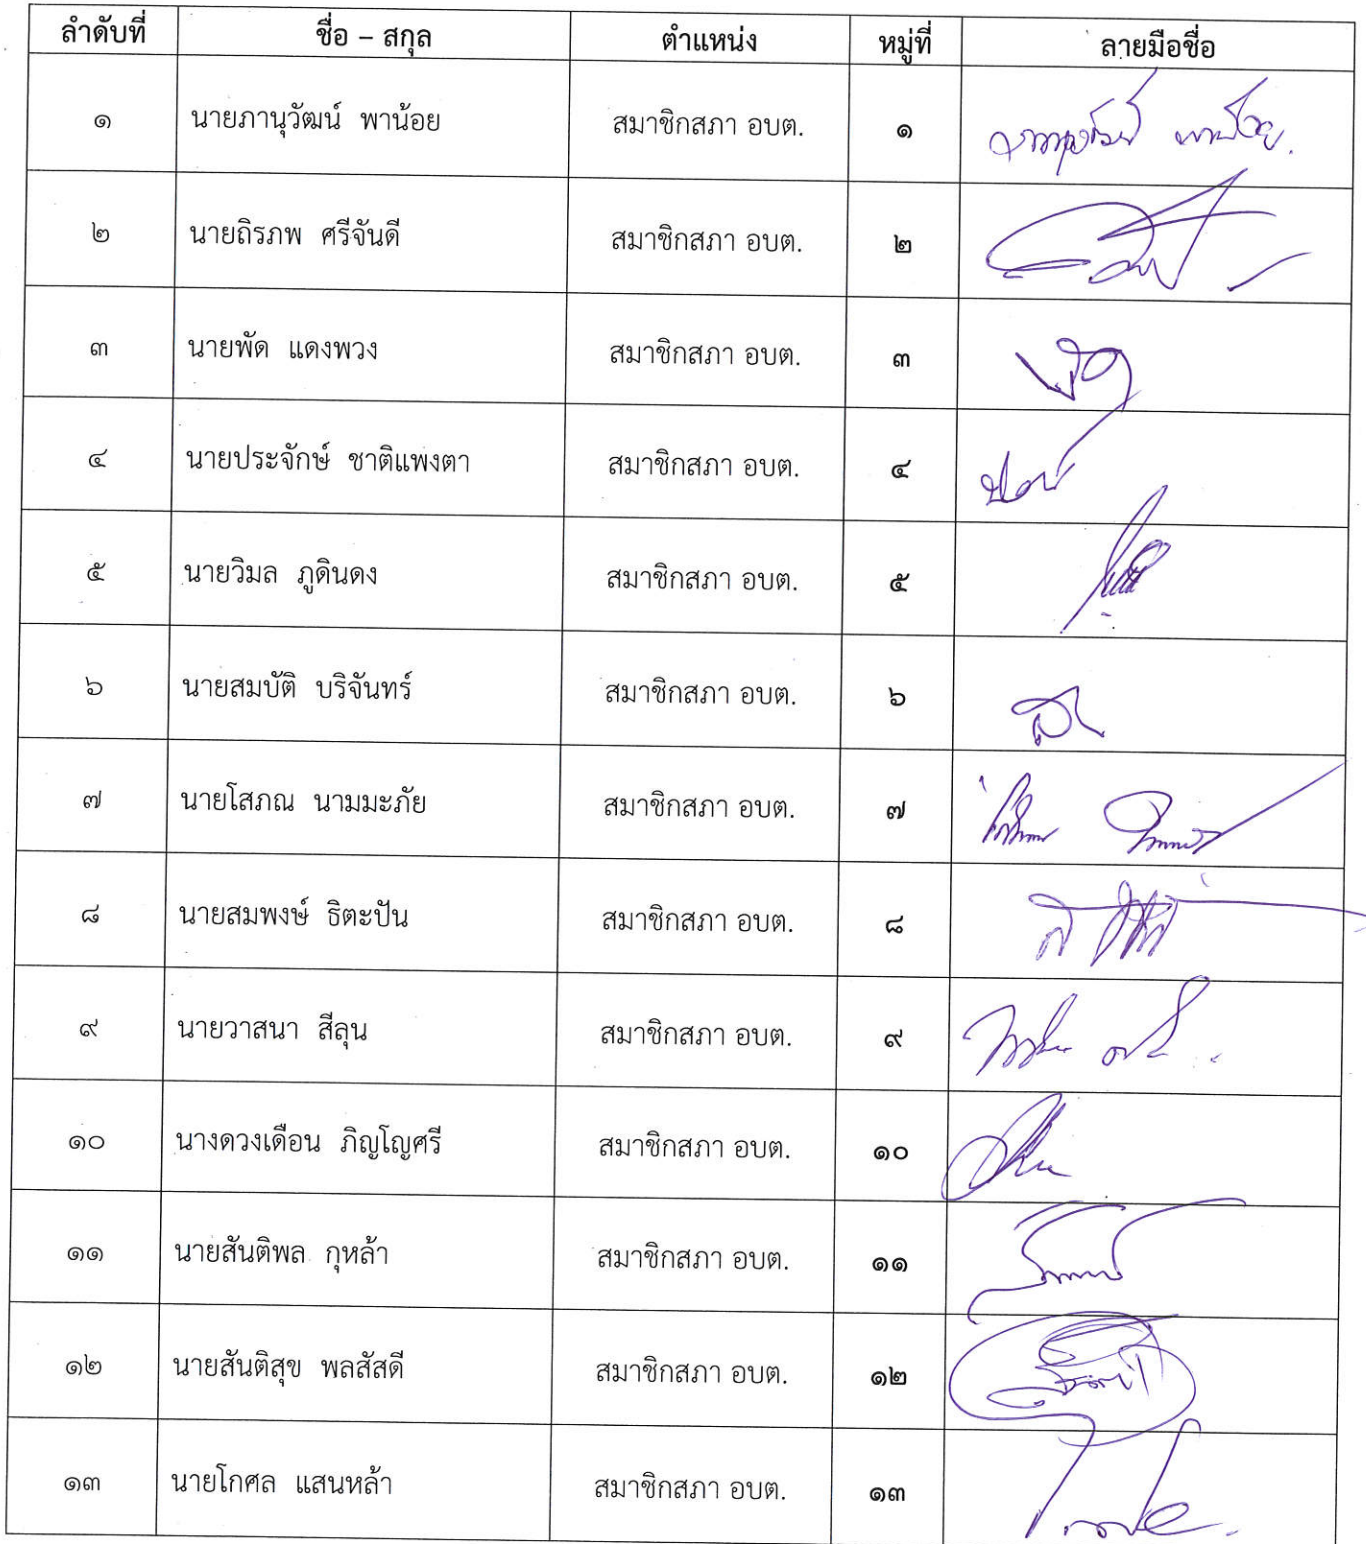 ลำดับที่ ชื่อ – สกุล ตำแหน่ง หมู่ที่ ลายมือชื่อ
๑ นายภานุวัฒน์ พาน้อย สมาชิกสภา อบต. ๑ ภานุวัฒน์ พาน้อย.
๒ นายถิรภพ ศรีจันดี สมาชิกสภา อบต. ๒
๓ นายพัด แดงพวง สมาชิกสภา อบต. ๓ พัด
๔ นายประจักษ์ ชาติแพงตา สมาชิกสภา อบต. ๔
๕ นายวิมล ภูดินดง สมาชิกสภา อบต. ๕
๖ นายสมบัติ บริจันทร์ สมาชิกสภา อบต. ๖
๗ นายโสภณ นามมะภัย สมาชิกสภา อบต. ๗
๘ นายสมพงษ์ ธิตะปัน สมาชิกสภา อบต. ๘
๙ นายวาสนา สีลุน สมาชิกสภา อบต. ๙
๑๐ นางดวงเดือน ภิญโญศรี สมาชิกสภา อบต. ๑๐
๑๑ นายสันติพล กุหล้า สมาชิกสภา อบต. ๑๑
๑๒ นายสันติสุข พลสัสดี สมาชิกสภา อบต. ๑๒
๑๓ นายโกศล แสนหล้า สมาชิกสภา อบต. ๑๓